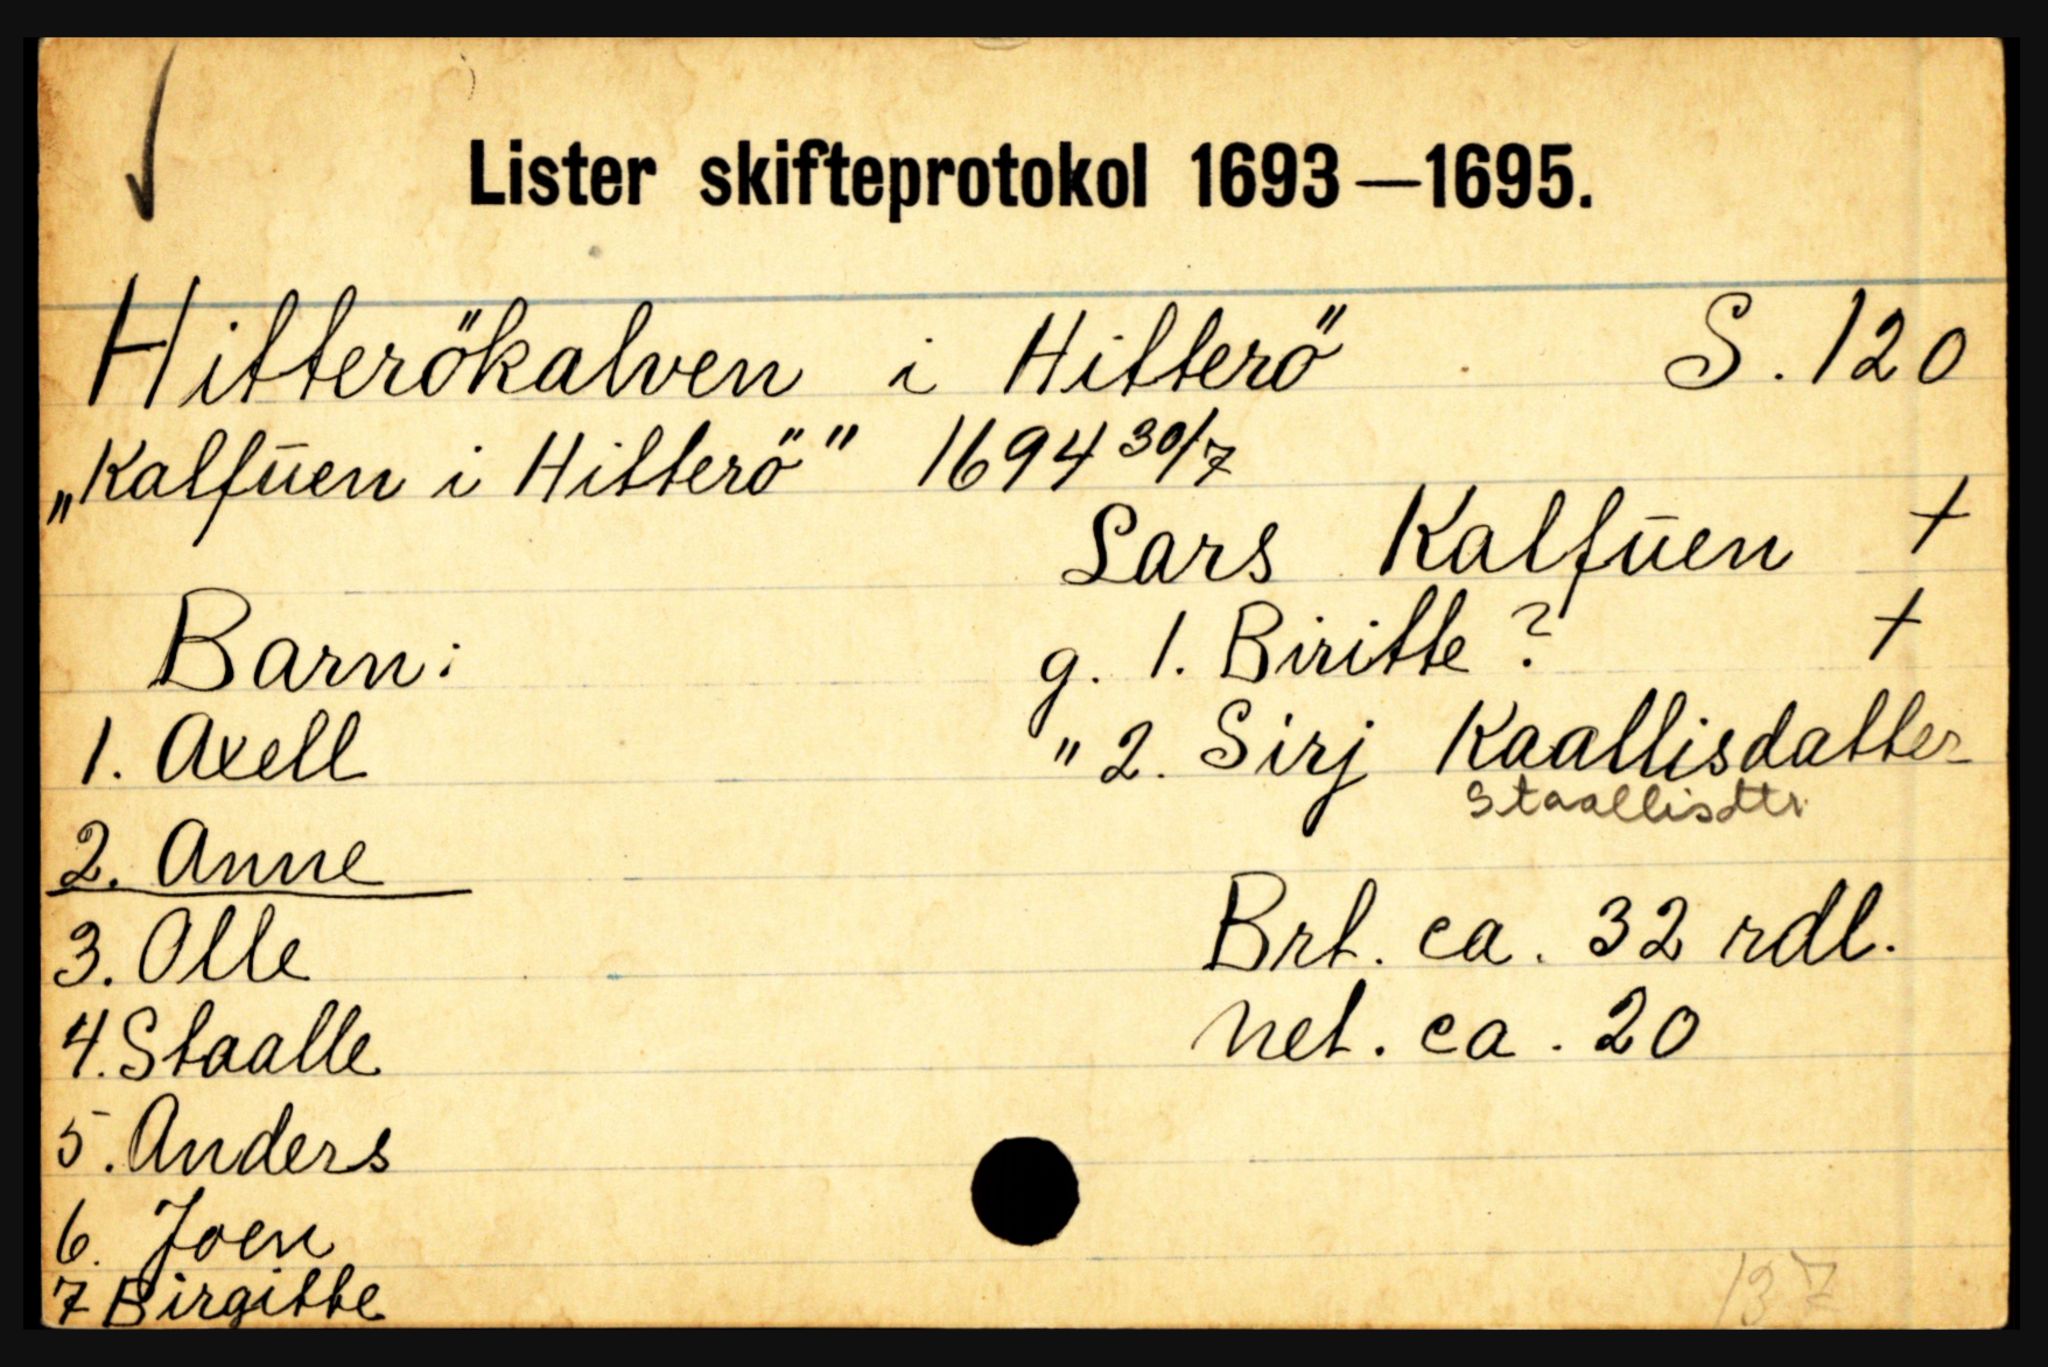 Lister skifteprotokol 1693—1695.
Hitterökalven i Hitterö S. 120
„Kalfūen i Hitterö" 1694 30/7
Lars Kalfūen †
Barn: g. 1. Biritte ? †
1. Axell " 2. Sirj Kaallisdatter
Staallisdtr.
2. Anne
3. Olle Brt. ca. 32 rdl.
4. Staalle net. ca. 20
5. Anders
6. Joen
7 Birgitte
137